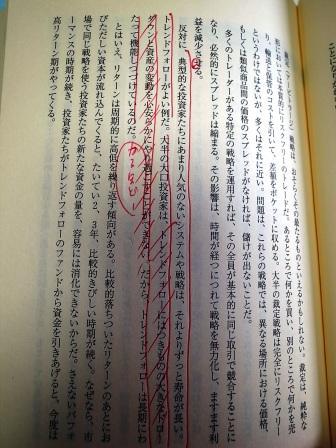 裁定（アービトラージ）戦略は、おおらくその最たるものといえるかもしれない。裁定は、純粋な
形において本質的にリスクフリーのトレードだ。あるところで何かを買い、別のところで何かを売
り、輸送と保管のコストを引いて、差額をポケットに収める。大半の裁定戦略は完全にリスクフリー
というわけではないが、多くはそれに近い。問題は、これらの戦略では、異なる場所における価格、
もしくは類似商品間の価格のスプレッドがなければ、儲けが出ないことだ。
多くのトレーダーがある特定の戦略を運用すれば、その全員が基本的に同じ取引で競合することに
なり、必然的にスプレッドは縮まる。その影響は、時間が経つにつれて戦略を無力化し、ますます利
益を減少させる。
反対に、典型的な投資家たちにあまり人気のないシステムや戦略は、それよりずっと寿命が長い。
トレンドフォローがよい例だ。大半の大口投資家は、トレンドフォローにはつきものの大きなドロー
ダウンと資産の変動を心安らかに
できない。だから、トレンドフォローは長期にわ
たって機能しつづけているのだ。
とはいえ、リターンは周期的に高低を繰り返す傾向がある。比較的落ちついたリターンのあとにお
びただしい資本が流れ込んでくると、たいてい2、3年、比較的きびしい時期が続く。なぜなら、市
場で同じ戦略を使う投資家たちの新たな資金の量を、容易には消化できないからだ。さえないパフォ
ーマンスの時期が続き、投資家たちがトレンドフォローのファンドから資金を引きあげると、今度は
高リターン期がやってくる。